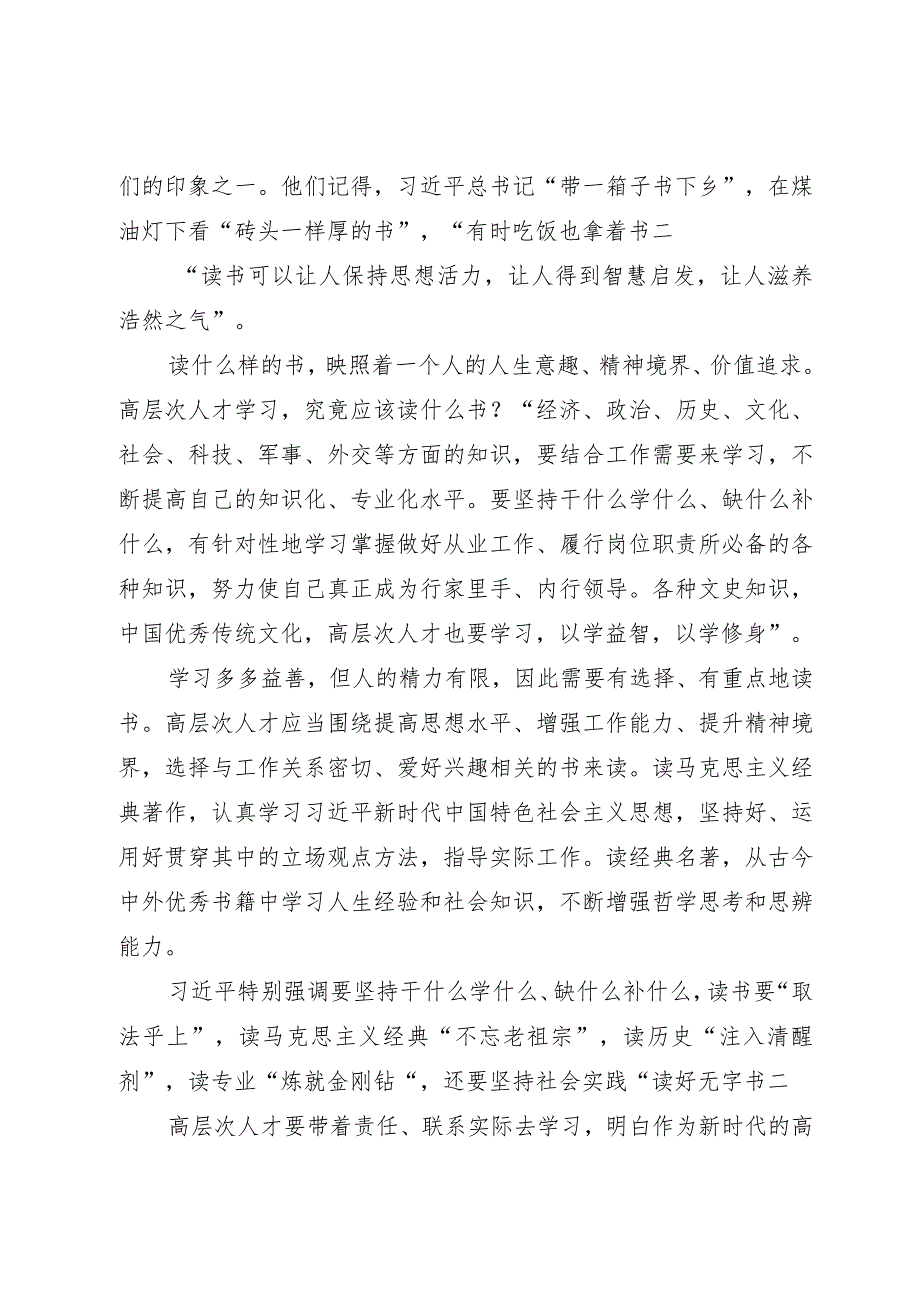 们的印象之一。他们记得，习近平总书记“带一箱子书下乡”，在煤
油灯下看“砖头一样厚的书”，“有时吃饭也拿着书二
“读书可以让人保持思想活力，让人得到智慧启发，让人滋养
浩然之气”。
读什么样的书，映照着一个人的人生意趣、精神境界、价值追求。
高层次人才学习，究竟应该读什么书？“经济、政治、历史、文化、
社会、科技、军事、外交等方面的知识，要结合工作需要来学习，不
断提高自己的知识化、专业化水平。要坚持干什么学什么、缺什么补
什么，有针对性地学习掌握做好从业工作、履行岗位职责所必备的各
种知识，努力使自己真正成为行家里手、内行领导。各种文史知识，
中国优秀传统文化，高层次人才也要学习，以学益智，以学修身”。
学习多多益善，但人的精力有限，因此需要有选择、有重点地读
书。高层次人才应当围绕提高思想水平、增强工作能力、提升精神境
界，选择与工作关系密切、爱好兴趣相关的书来读。读马克思主义经
典著作，认真学习习近平新时代中国特色社会主义思想，坚持好、运
用好贯穿其中的立场观点方法，指导实际工作。读经典名著，从古今
中外优秀书籍中学习人生经验和社会知识，不断增强哲学思考和思辨
能力。
习近平特别强调要坚持干什么学什么、缺什么补什么，读书要“取
法乎上”，读马克思主义经典“不忘老祖宗”，读历史“注入清醒
剂”，读专业“炼就金刚钻“，还要坚持社会实践“读好无字书二
高层次人才要带着责任、联系实际去学习，明白作为新时代的高